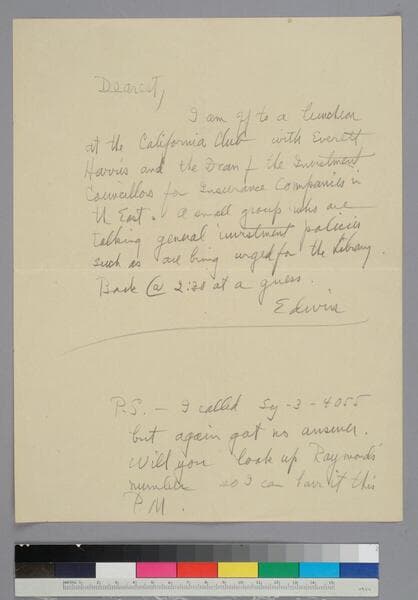 Dearest,
I am off to a luncheon
at the California Club with Everett
Harris and the Dean of the Investment
Councillors for Insurance Companies in
the East. A small group who are
talking general investment policies
such as are being urged for the Library.
Back @ 2:30 at a guess.
Edwin
P.S. – I called Sy-3-4055
but again got no answer.
Will you look up Raymond's
number so I can have it this
P.M.